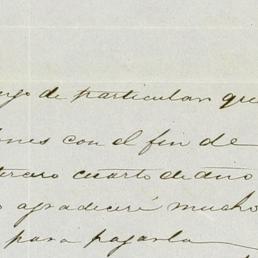 de particular que
con el fin de
tercero cuarto de año
agradeceré mucho
para pagarla